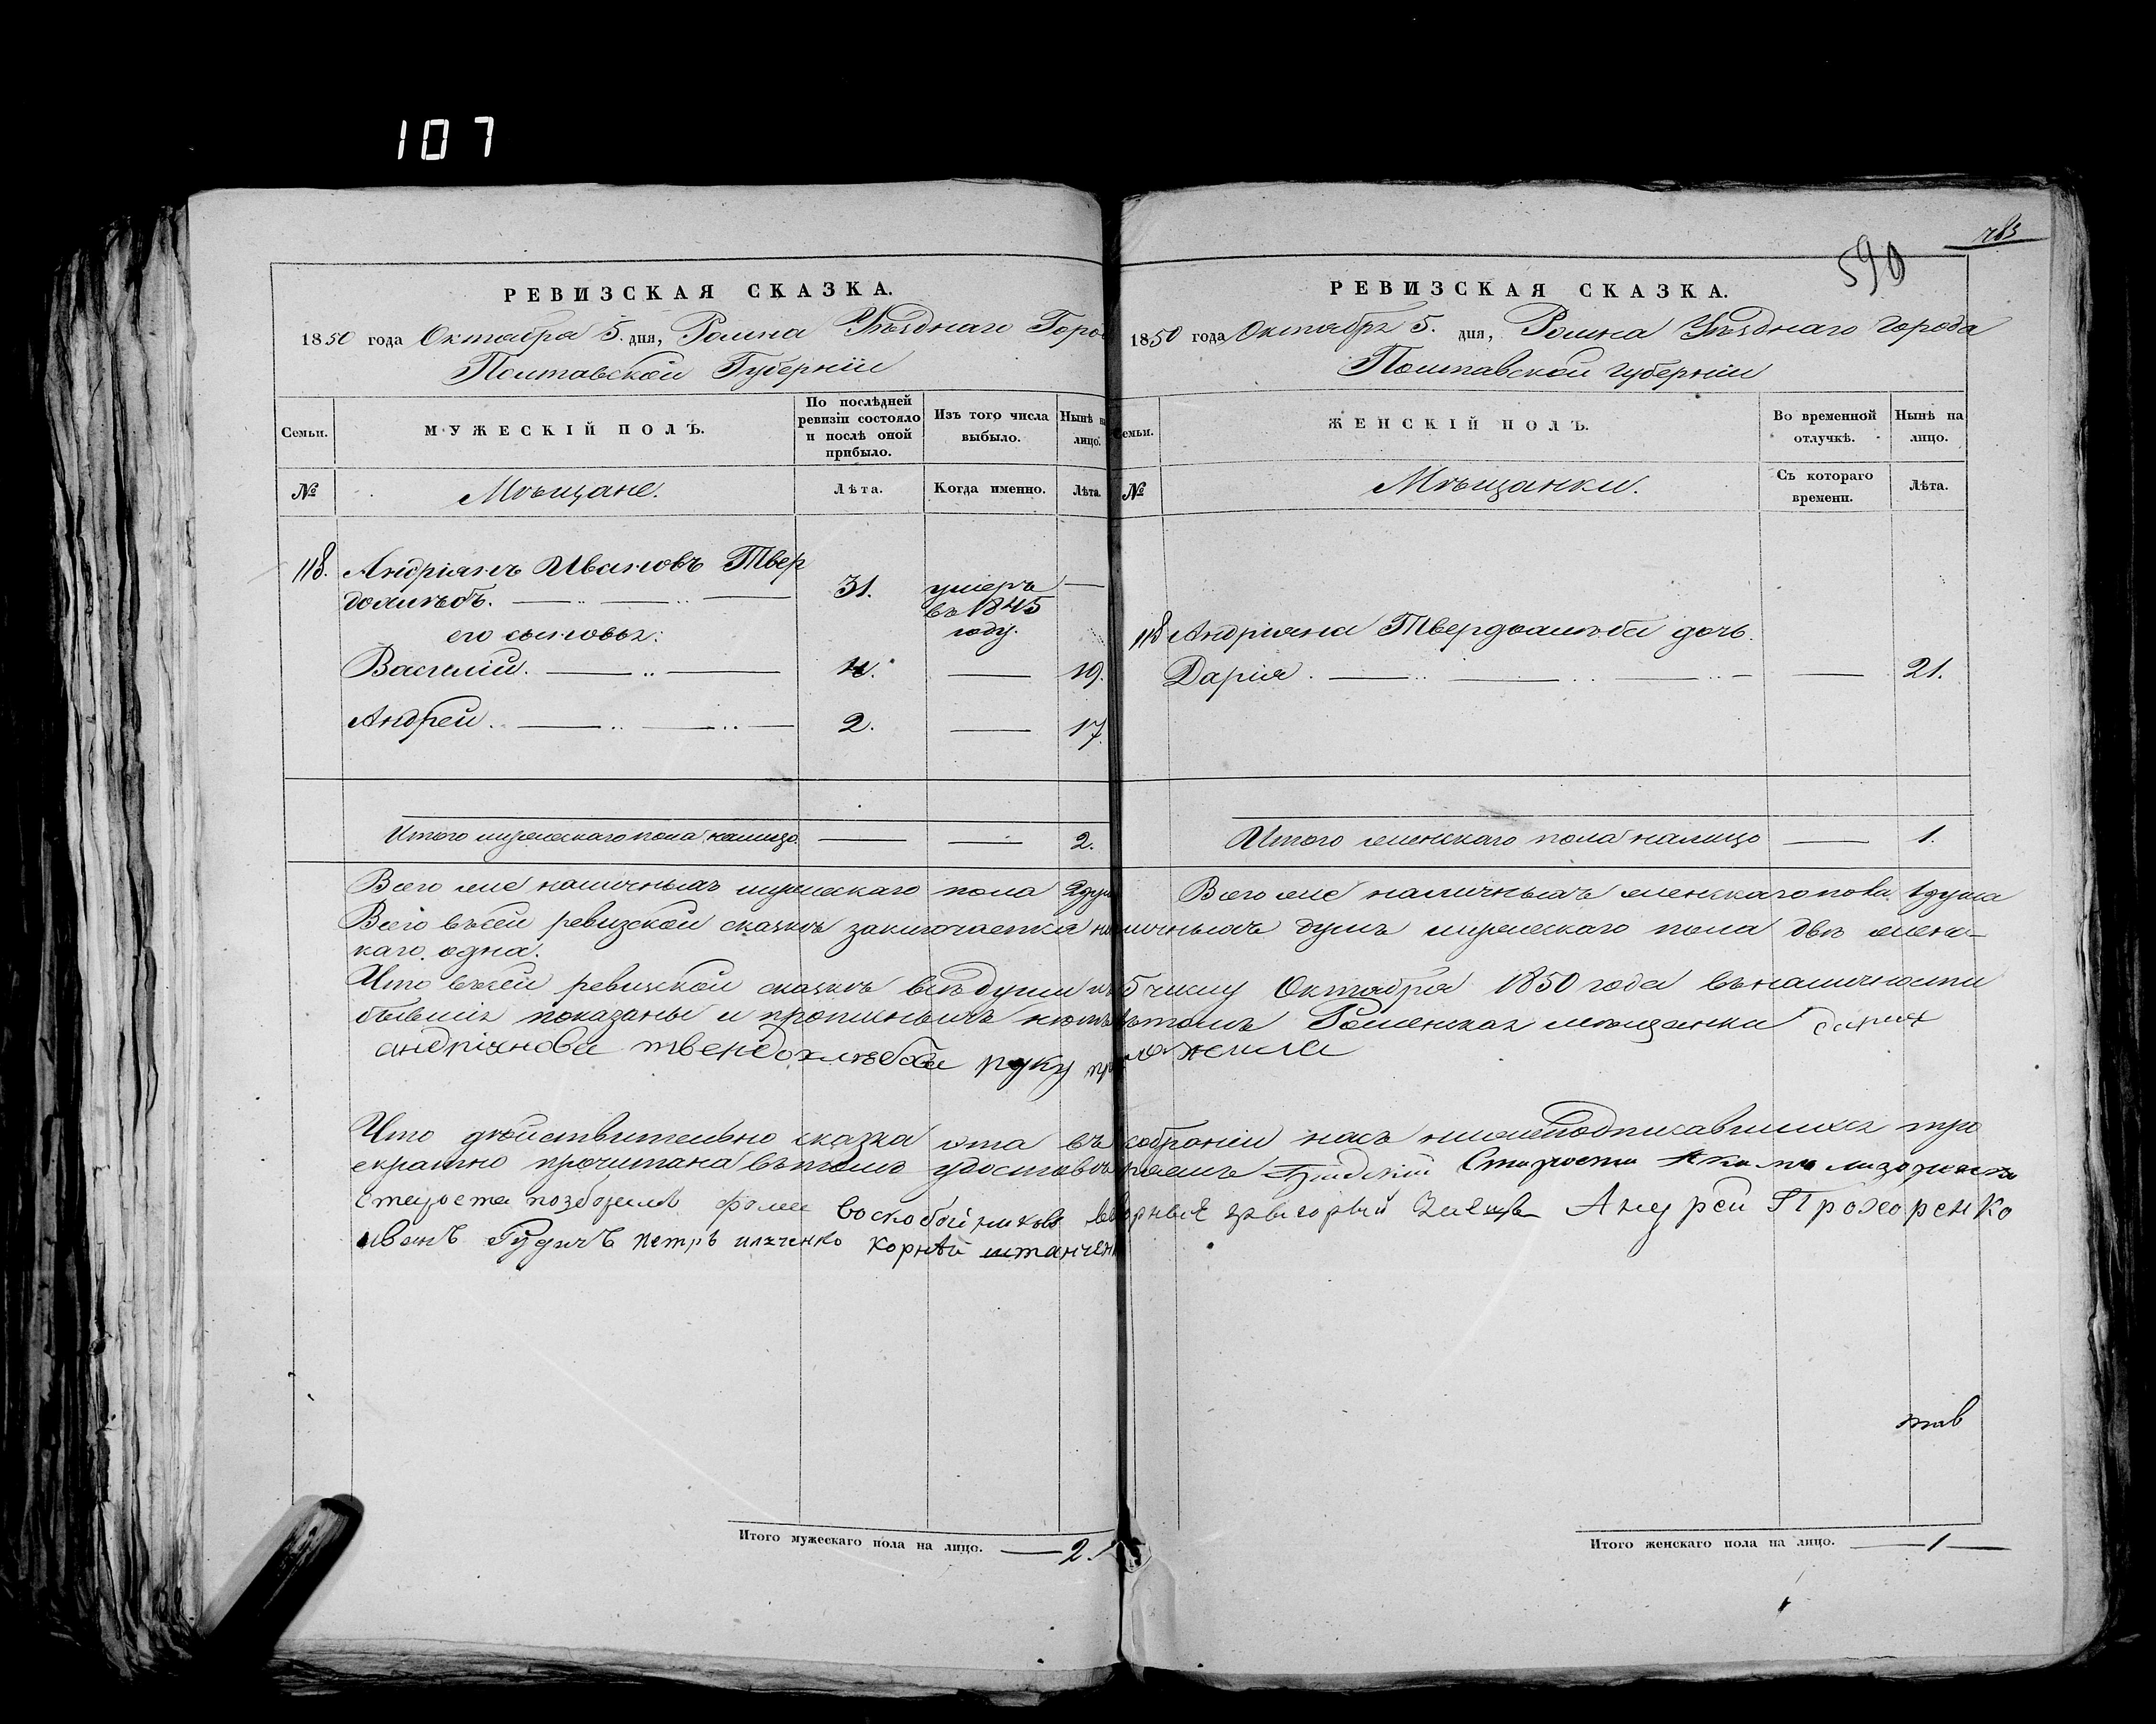 107
783
590
РЕВИЗСКАЯ СКАЗКА.
1850 года Октября 5. дня, Ромна Уѣзднаго Горо
Полтавской Губерніи
Семьи.
МУЖЕСКІЙ ПОЛЪ.
По послѣдней ревизіи состояло и послѣ оной прибыло.
Изъ того числа выбыло.
Нынѣ на лицо.
№
Мѣщане.
Лѣта.
Когда именно.
Лѣта.
118. Андріянъ Ивановъ Твер
дохлѣбъ. 31. умеръ въ 1845 году. —
его сыновья:
Василій. 4. — 19.
Андрей. 2. — 17.
Итого мужескаго пола налицо. — — 2.
Всего же наличныхъ мужескаго пола 2 души
РЕВИЗСКАЯ СКАЗКА.
1850 года Октября 5. дня, Ромна Уѣзднаго Города
Полтавской Губерніи
Семьи.
ЖЕНСКІЙ ПОЛЪ.
Во временной отлучкѣ.
Нынѣ на лицо.
№
Мѣщанки.
Съ котораго времени.
Лѣта.
118 Андріяна Твердохлѣба дочь.
Дарія. — 21.
Итого женскаго пола налицо — 1.
Всего же наличныхъ женскаго пола. 1 душа
Всего въ сей ревизской сказкѣ заключается наличныхъ душъ мужескаго пола двѣ женс-
каго одна.
Что въ сей ревизской сказкѣ всѣ души къ 5 числу Октября 1850 года въ наличности
бывшія показаны и прописныхъ нѣтъ въ томъ Роменская мѣщанка Дарія
андріянова твердохлѣбова руку приложила
Что дѣйствительно сказка эта въ собраніи насъ нижеподписавшихся тро
екратно прочитана въ томъ удостовѣряемъ Градскій Староста
староста фома воскобойниковъ Андрей Прохоренко
иванъ Рудичъ петръ корнѣй штанченко
Итого мужескаго пола на лицо. — 2.
Итого женскаго пола на лицо. — 1 —